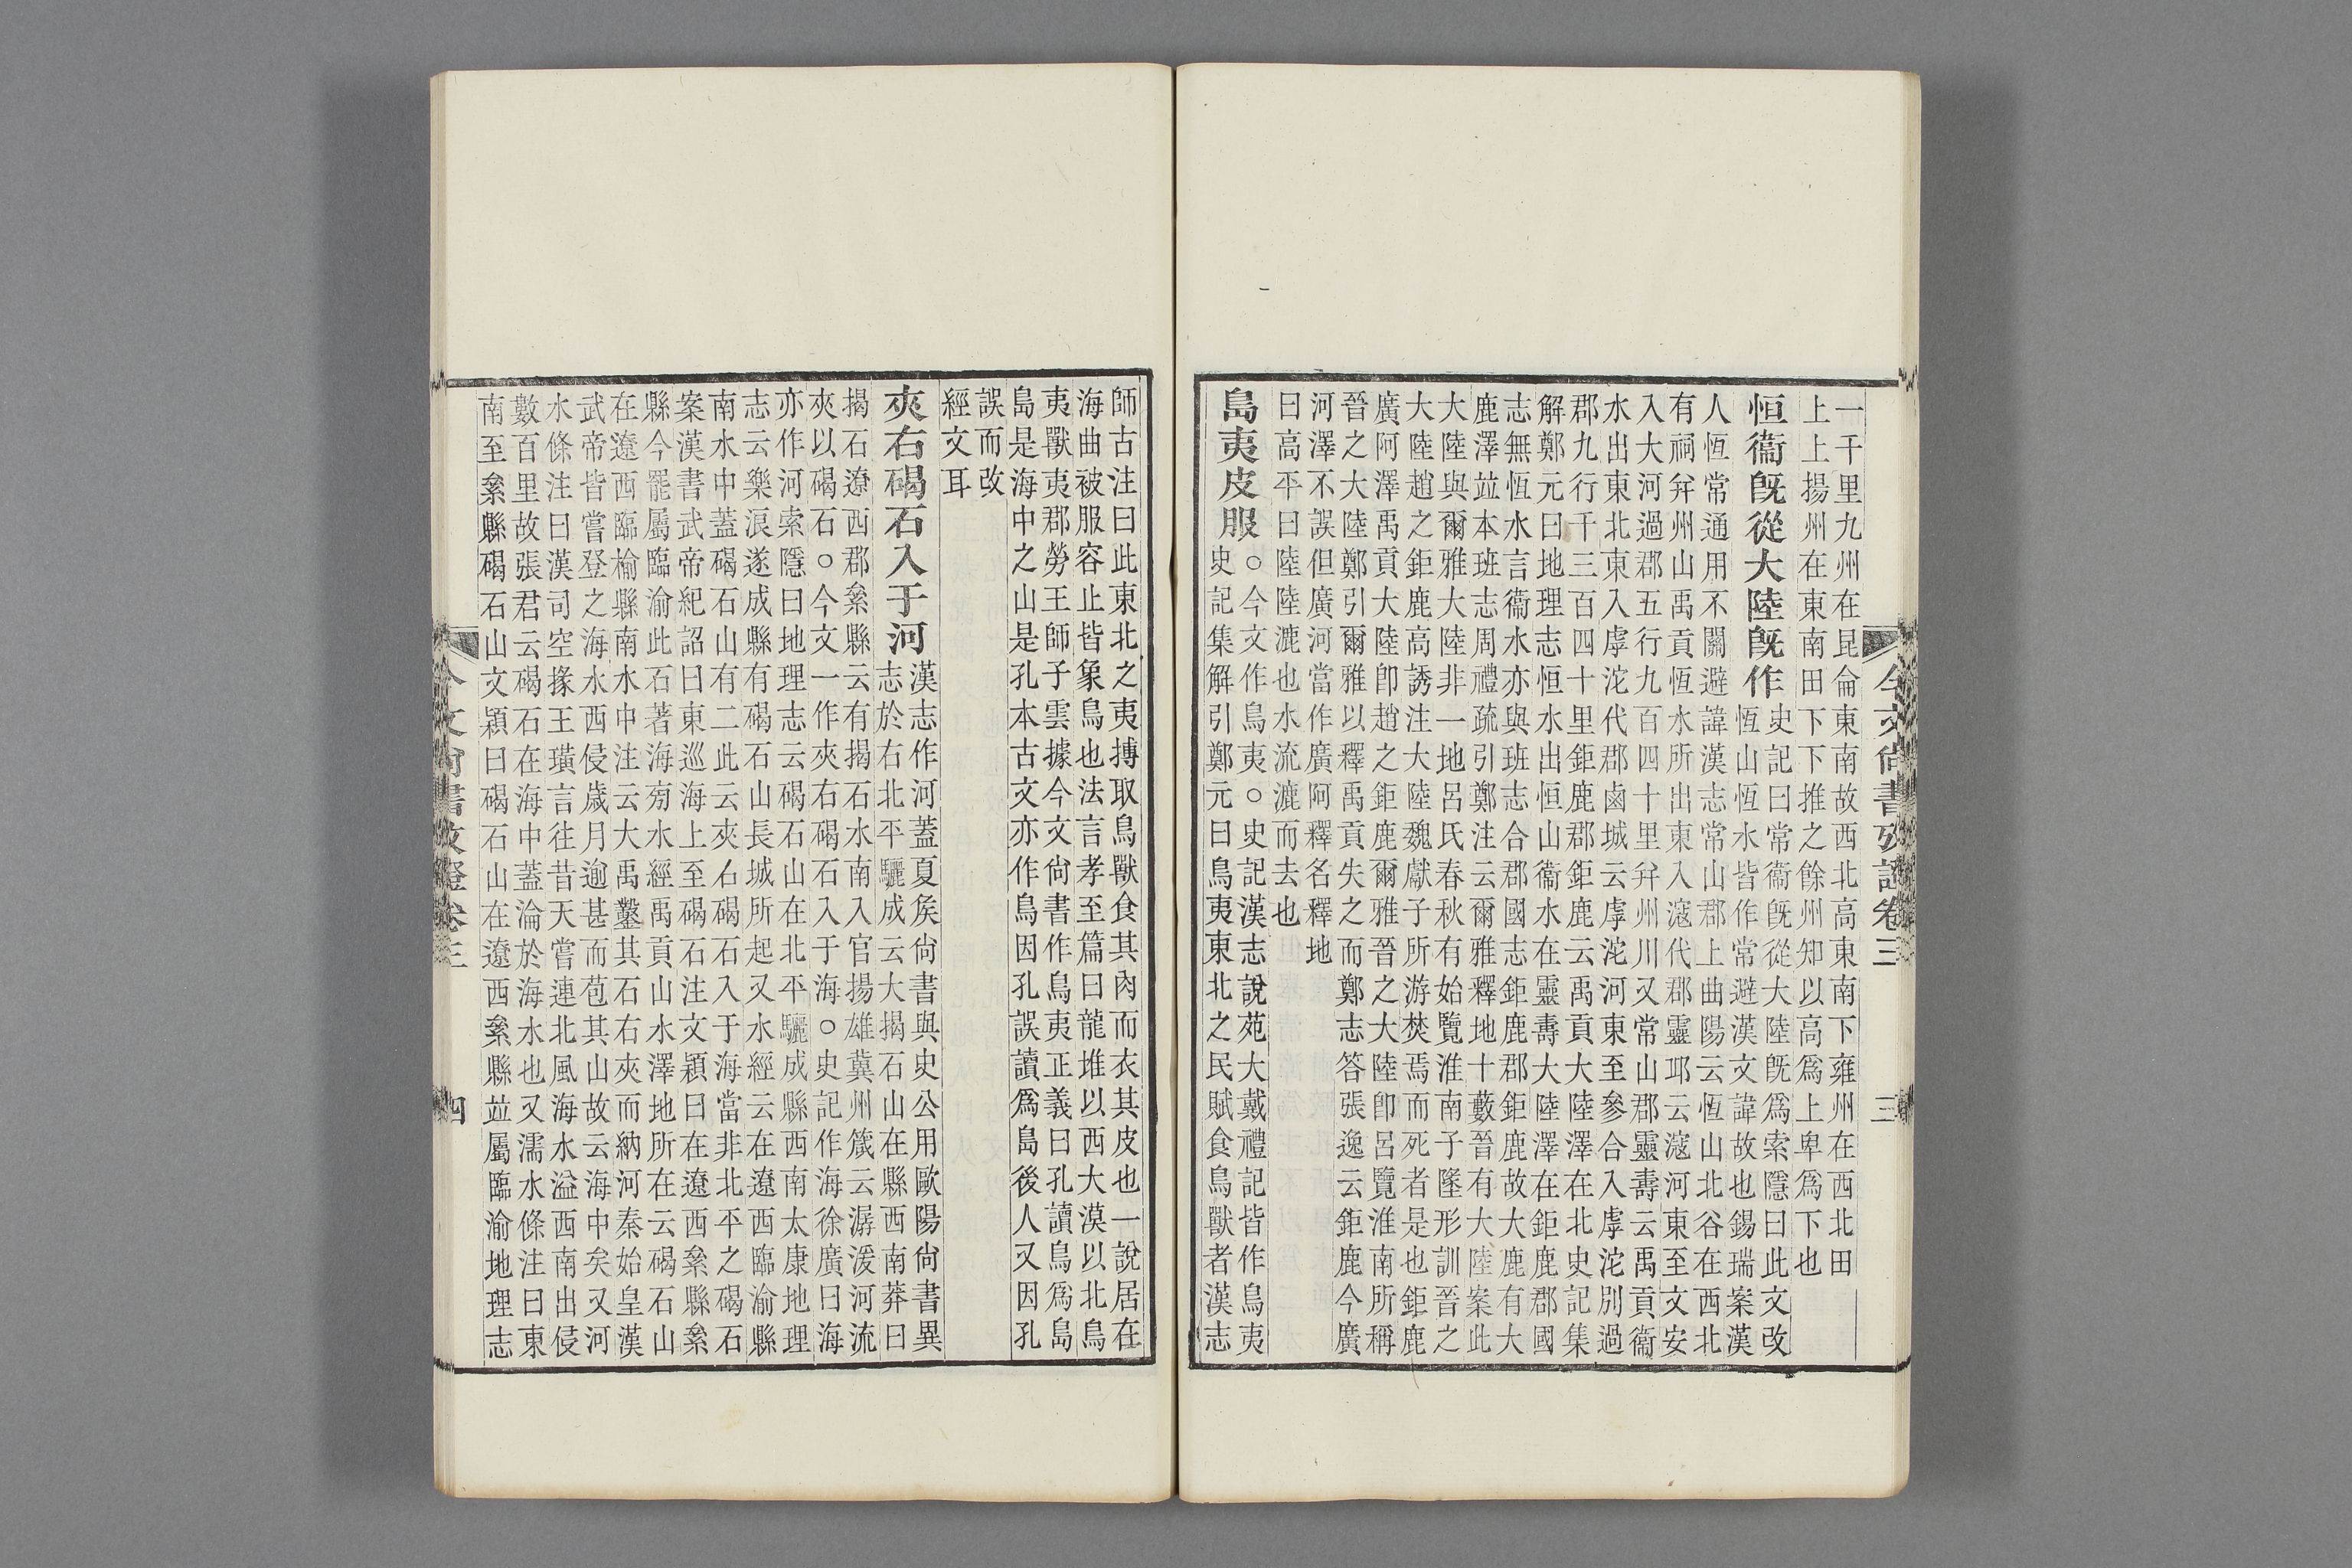 一千里九州在昆侖東南故西北高東南下雍州在西北田
上上揚州在東南田下下推之餘州知以高爲上卑爲下也
恒衞旣從大陸旣作
史記曰常衞旣從大陸旣爲索隱曰此文改
恆山恆水皆作常避漢文諱故也錫瑞案漢
人恆常通用不關避諱漢志常山郡上曲陽云恆山北谷在西北
有祠幷州山禹貢恆水所出東入滱代郡靈邱云滱河東至文安
入大河過郡五行九百四十里幷州川又常山郡靈壽云禹貢衞
水出東北東入虖沱代郡鹵城云虖沱河東至參合入虖沱別過
郡九行千三百四十里鉅鹿郡鉅鹿云禹貢大陸澤在北史記集
解鄭元曰地理志恒水出恒山衞水在靈壽大陸澤在鉅鹿郡國
志無恆水言衞水亦與班志合郡國志鉅鹿郡鉅鹿故大鹿有大
鹿澤竝本班志周禮疏引鄭注云爾雅釋地十藪晉有大陸案此
大陸與爾雅大陸非一地呂氏春秋有始覽淮南子墬形訓晉之
大陸趙之鉅鹿高誘注大陸魏獻子所游焚焉而死者是也鉅鹿
廣阿澤禹貢大陸卽趙之鉅鹿爾雅晉之大陸卽呂覽淮南所稱
晉之大陸鄭引爾雅以釋禹貢失之而鄭志答張逸云鉅鹿今廣
河澤不誤但廣河當作廣阿釋名釋地
曰高平曰陸陸漉也水流漉而去也
島夷皮服
○今文作鳥夷○史記漢志說苑大戴禮記皆作鳥夷
史記集解引鄭元曰鳥夷東北之民賦食鳥獸者漢志
今文尚書攷證卷三
三
師古注曰此東北之夷搏取鳥獸食其肉而衣其皮也一說居在
海曲被服容止皆象鳥也法言孝至篇曰龍堆以西大漠以北鳥
夷獸夷郡勞王師子雲據今文尙書作鳥夷正義曰孔讀鳥爲島
島是海中之山是孔本古文亦作鳥因孔誤讀爲島後人又因孔
誤而改
經文耳
夾右碣石入于河
漢志作河蓋夏矦尙書與史公用歐陽尙書異
志於右北平驪成云大揭石山在縣西南莽曰
揭石遼西郡絫縣云有揭石水南入官揚雄冀州箴云潺湲河流
夾以碣石○今文一作夾右碣石入于海○史記作海徐廣曰海
亦作河索隱曰地理志云碣石山在北平驪成縣西南太康地理
志云樂浪遂成縣有碣石山長城所起又水經云在遼西臨渝縣
南水中蓋碣石山有二此云夾右碣石入于海當非北平之碣石
案漢書武帝紀詔曰東巡海上至碣石注文穎曰在遼西絫縣絫
縣今罷屬臨渝此石著海㫄水經禹貢山水澤地所在云碣石山
在遼西臨榆縣南水中注云大禹鑿其石右夾而納河秦始皇漢
武帝皆嘗登之海水西侵歲月逾甚而苞其山故云海中矣又河
水條注曰漢司空掾王璜言往昔天嘗連北風海水溢西南出侵
數百里故張君云碣石在海中蓋淪於海水也又濡水條注曰東
南至絫縣碣石山文穎曰碣石山在遼西絫縣竝屬臨渝地理志
今文尚書攷證卷三
四